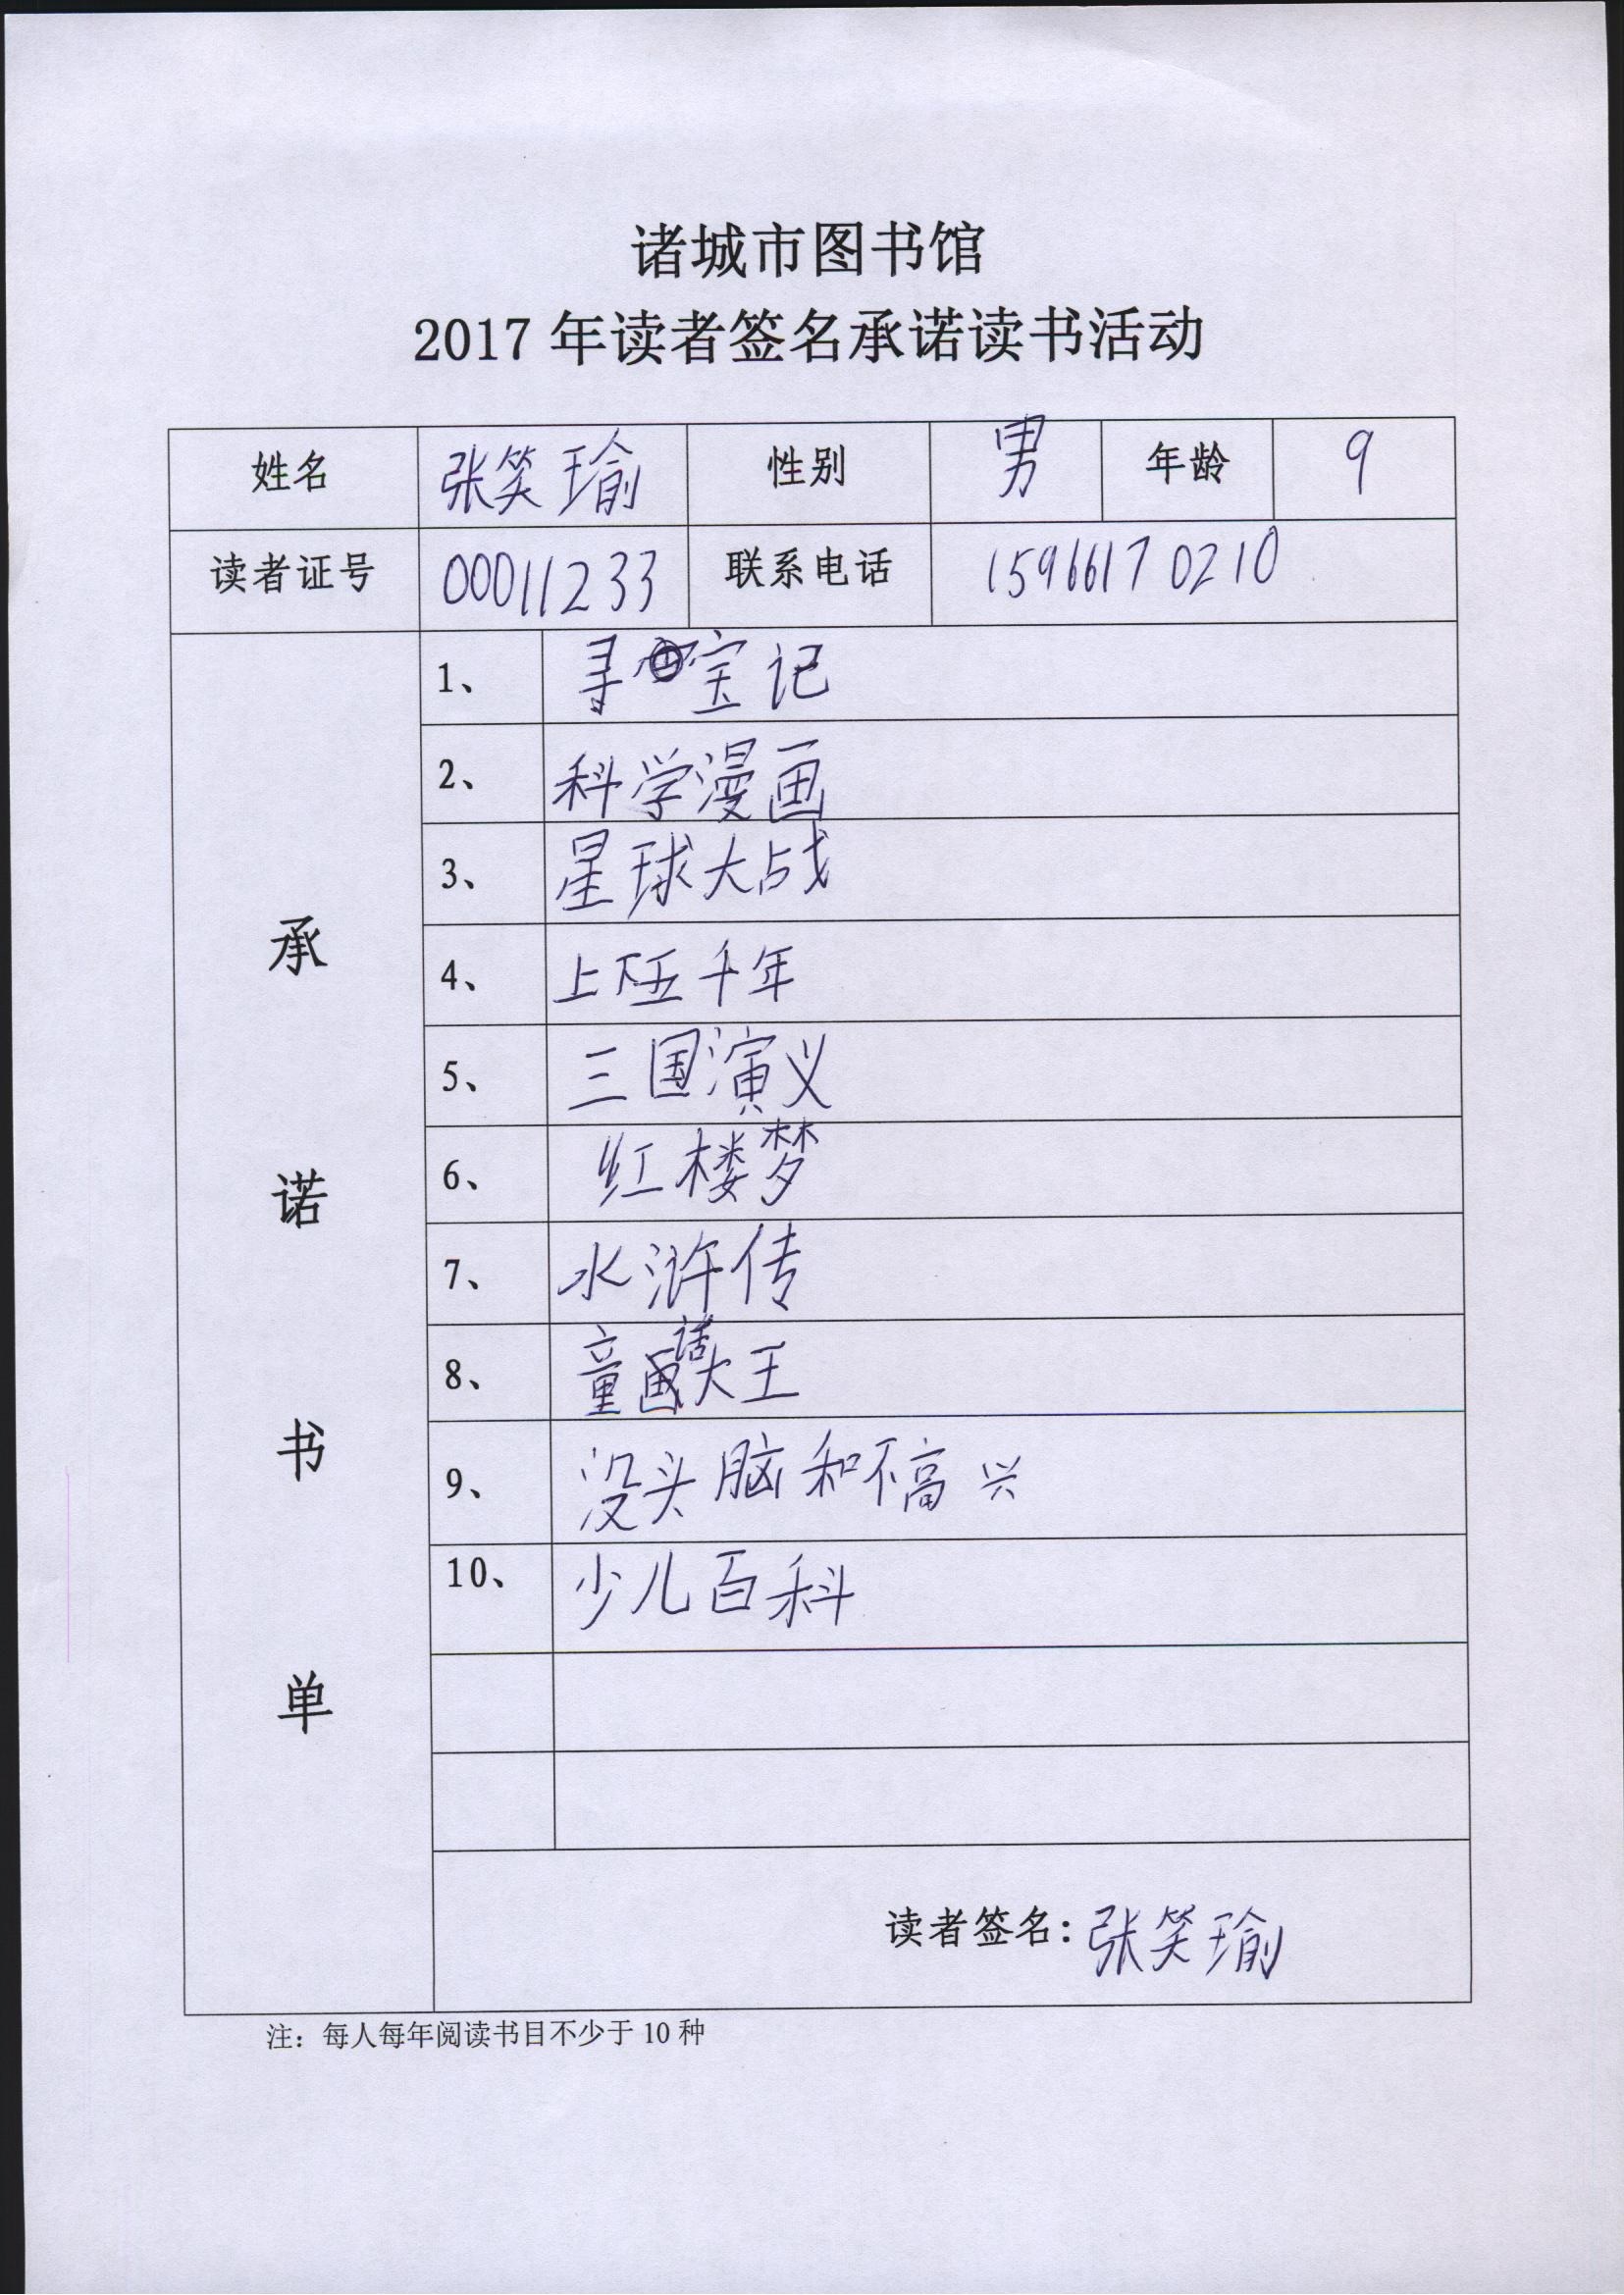 诸城市图书馆
2017年读者签名承诺读书活动
姓名 张笑瑜 性别 男 年龄 9
读者证号 00011233 联系电话 15966170210
承诺书单
1、 寻宝记
2、 科学漫画
3、 星球大战
4、 上下五千年
5、 三国演义
6、 红楼梦
7、 水浒传
8、 童话大王
9、 没头脑和不高兴
10、 少儿百科
读者签名：张笑瑜
注：每人每年阅读书目不少于10种